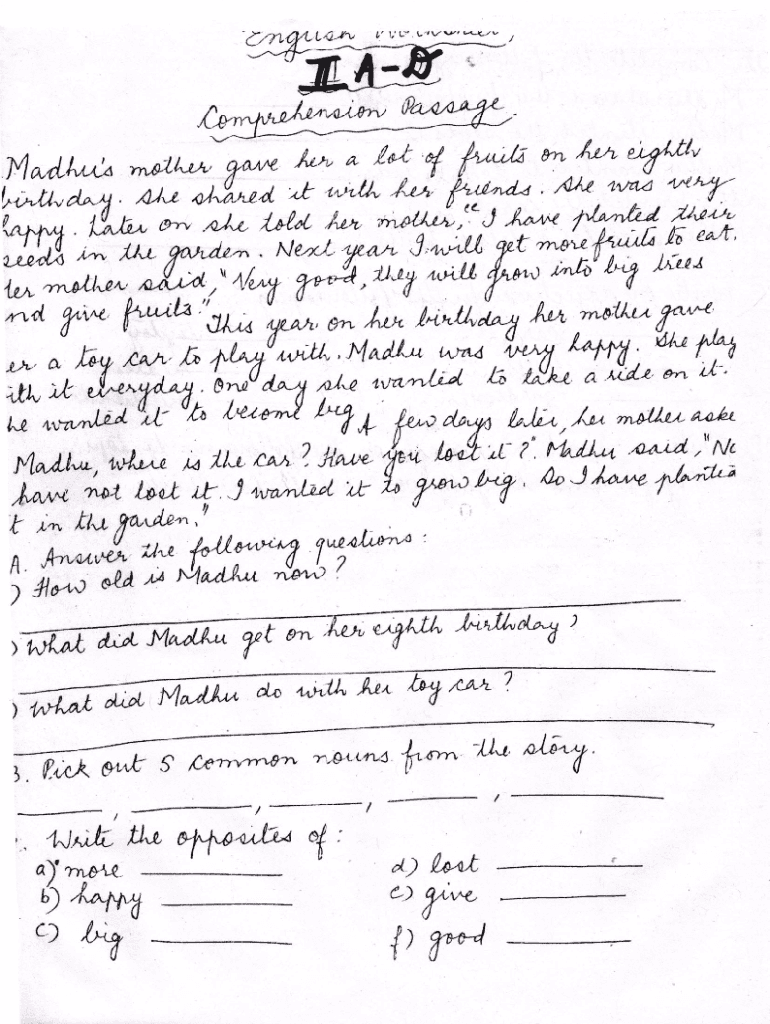 English Worksheet,
II A-D
Comprehension Passage.
Madhu's mother gave her a lot of fruits on her eighth
birthday. She shared it with her friends. She was very
happy. Later on she told her mother, "I have planted their
seeds in the garden. Next year I will get more fruits to eat.
Her mother said, "Very good, they will grow into big trees
nd give fruits."
This year on her birthday her mother gave
er a toy car to play with. Madhu was very happy. She play
ith it everyday. One day she wanted to take a ride on it.
he wanted it to become big
A few days later, her mother aske
Madhu, where is the car? Have you lost it?". Madhu said, "No
have not lost it. I wanted it to grow big. So I have planted
t in the garden."
A. Answer the following questions:
) How old is Madhu now?
) What did Madhu get on her eighth birthday?
) What did Madhu do with her toy car?
3. Pick out 5 common nouns from the story.
, , , ,
. Write the opposites of:
a) more
d) lost
b) happy
e) give
c) big
f) good